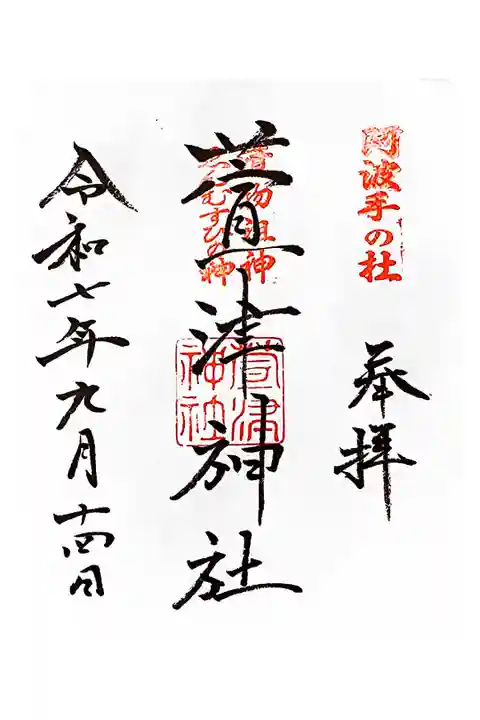 阿波手の杜
奉拝
香物祖神
むすびの神
萱津神社
萱津
神社
令和七年九月十四日